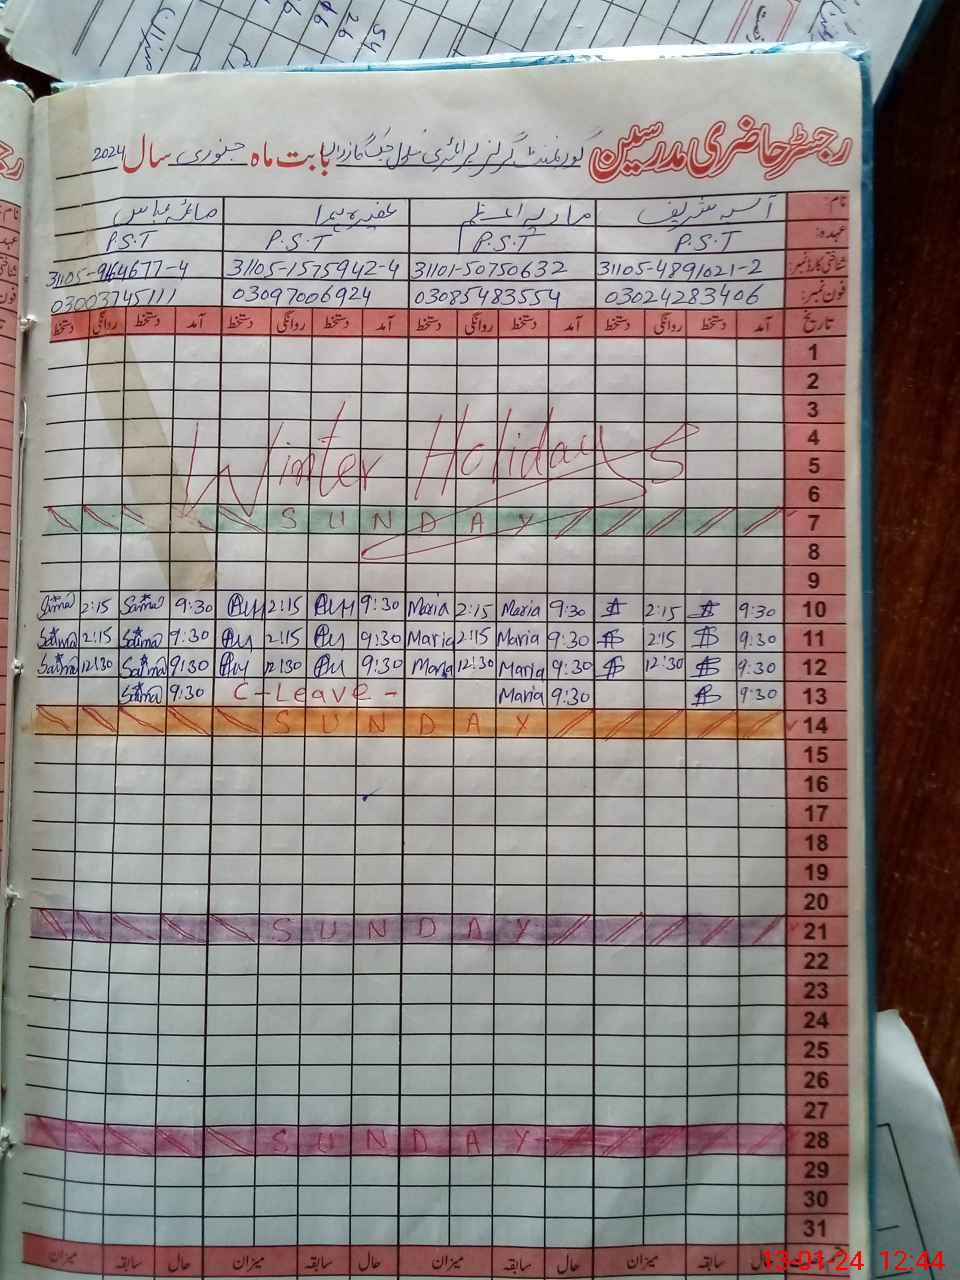 رجسٹر حاضری مدرسین گورنمنٹ گرلز پرائمری سکول بابت ماہ جنوری سال 2024
نام: آسیہ شریف ماریہ اعظم عفیرہ ہما صائمہ عباس
عہدہ: P.S.T P.S.T P.S.T P.S.T
شناختی کارڈ نمبر: 31105-4891021-2 31101-50750632 31105-1575942-4 31105-9164677-4
فون نمبر: 03024283406 03085483554 03097006924 03003745111
تاریخ آمد دستخط روانگی دستخط آمد دستخط روانگی دستخط آمد دستخط روانگی دستخط آمد دستخط روانگی دستخط
1
2
3
4
5
Winter Holidays
6
7 SUNDAY
8
9
10 9:30 2:15 9:30 Maria 2:15 Maria 9:30 2:15 9:30 Saima 2:15 Saima
11 9:30 2:15 9:30 Maria 2:15 Maria 9:30 2:15 9:30 Saima 2:15 Saima
12 9:30 12:30 9:30 Maria 12:30 Maria 9:30 12:30 9:30 Saima 12:30 Saima
13 9:30 9:30 Maria C-Leave - 9:30 Saima
14 SUNDAY
15
16
17
18
19
20
21 SUNDAY
22
23
24
25
26
27
28 SUNDAY
29
30
31
حال سابقہ میزان حال سابقہ میزان حال سابقہ میزان حال سابقہ میزان
13-01-24 12:44